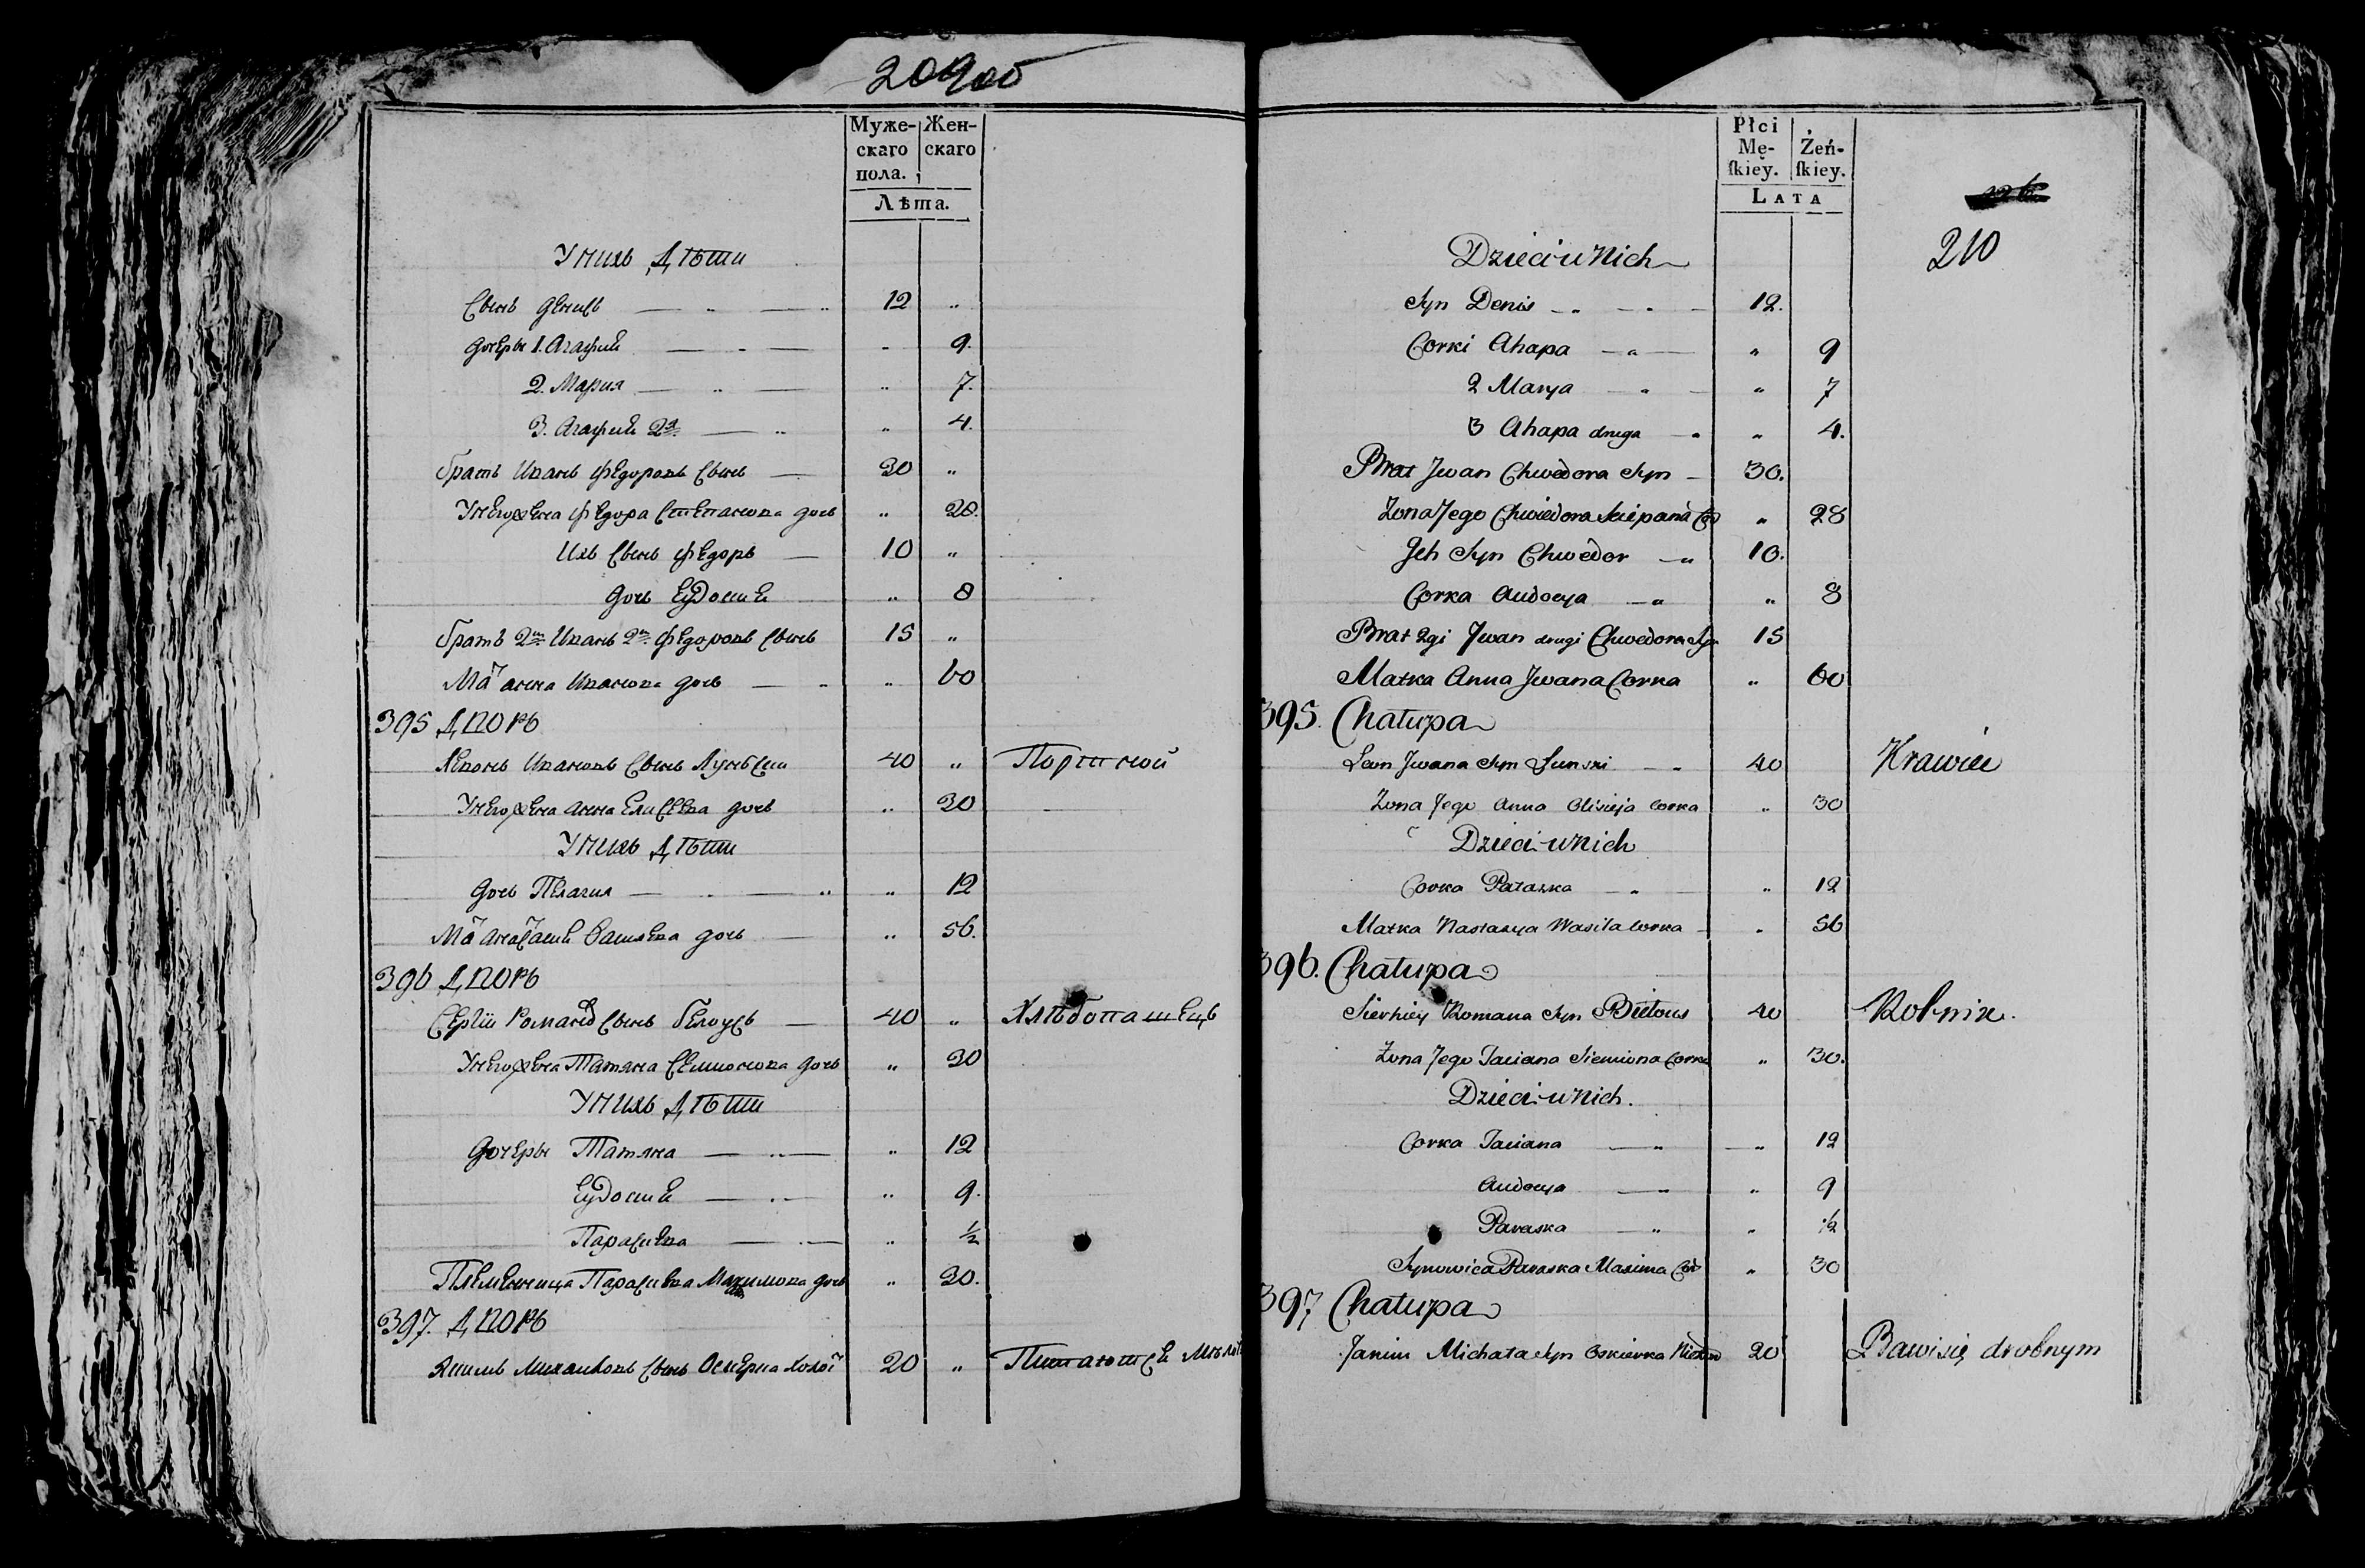 209 об
Муже- Жен-
скаго скаго
пола.
Лѣта.
У нихъ Дѣти
Сынъ Денисъ 12 „
Дочеры 1. Агафия - 9.
2. Мария „ 7.
3. Агафия 2я „ 4.
братъ Иванъ Федоровъ Сынъ 30 „
У него жена Федора Степанова дочь „ 28.
Ихъ Сынъ Федоръ 10 „
Дочь Еудокия „ 8
братъ 2й Иванъ 2й Федоровъ Сынъ 15 „
Мать анна Иванова дочь „ 60
395 Дворъ
Левонъ Ивановъ Сынъ 40 „ Портной
У него жена анна Елисеева дочь „ 30
У нихъ Дѣти
Дочь Пелагия „ 12
Мать анастасия Васильева дочь „ 56.
396 Дворъ
Сергій Романовъ Сынъ белоусъ 40 „ Хлѣбопашецъ
У него жена Татяна Семионова дочь „ 30
У нихъ Дѣти
Дочеры Татяна „ 12
Еудокия „ 9.
Парасивка „ ½
Племянница Парасивка Макимова дочь „ 30.
397. Дворъ
Якимъ Михаиловъ Сынъ 20 „ Питаютсе
Płci
Mę- Żeń-
ſkiey. ſkiey.
LATA
210
Dzieci u Nich
Syn Denis 12.
Corki Ahapa „ 9
2 Marya „ 7
3 Ahapa druga „ 4.
Brat Jwan Chwedora Syn 30.
Zona Jego Chwiedora Sciepana Cor „ 28
Jch Syn Chwedor 10.
Corka Audocya „ 8
Brat 2gi Jwan drugi Chwedora Syn 15
Matka Anna Jwana Corka „ 60
395. Chałupa
Leon Jwana Syn Łunski 40 Krawiec
Zona Jego Anna Olisieja Corka „ 30
Dzieci u Nich
Corka Pałaszka „ 12
Matka Nastasya Wasila Corka „ 56
396. Chałupa
Sierhiey Romana Syn Biełous 40 Rolnik.
Zona Jego Taciana Siemiona Corka „ 30.
Dzieci u Nich.
Corka Taciana „ 12
Audocya „ 9
Paraska „ ½
Synowica Paraska Maxima Cor „ 30
397 Chałupa
Janim Michała Syn 20 Bawi się drobnym